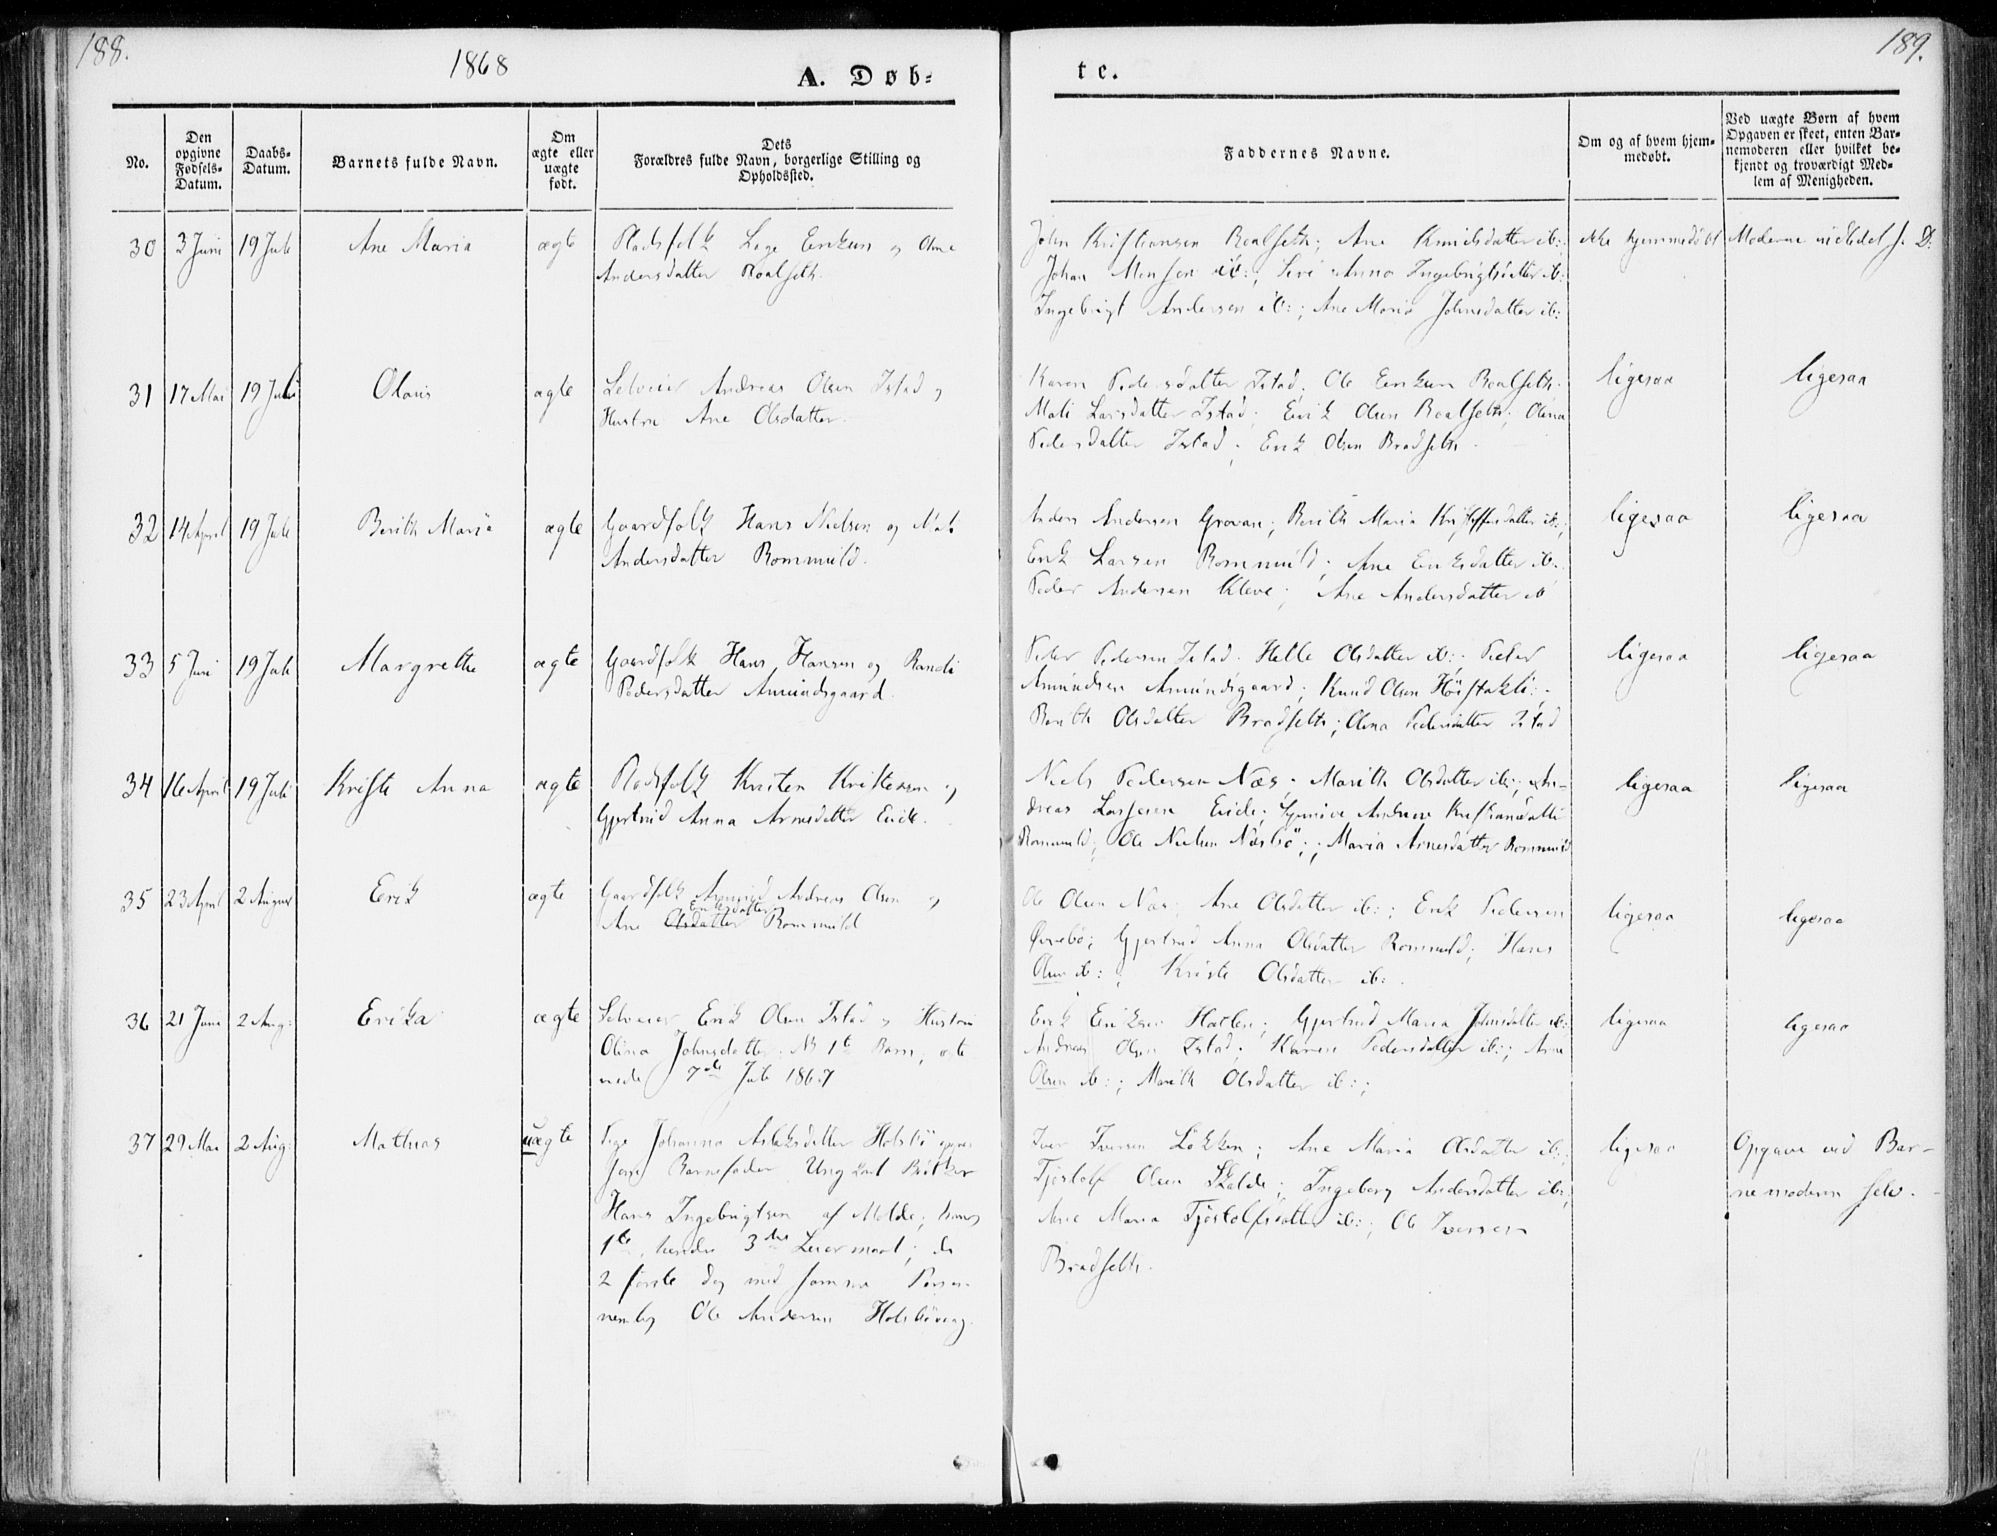 188.
1868
A. Døb-
No.
Den opgivne Fødsels-Datum.
Daabs-Datum.
Barnets fulde Navn.
Om ægte eller uægte født.
Dets Forældres fulde Navn, borgerlige Stilling og Opholdssted.
30 3 Juni 19 Juli Ane Maria ægte Pladsfolk Lage Eriksen og Ane
Andersdatter Roalseth.
31 17 Mai 19 Juli Olaus ægte Selveier Andreas Olsen Istad og
Hustru Ane Olsdatter.
32 14 April 19 Juli Berith Maria ægte Gaardfolk Hans Nielsen og Mali
Andersdatter Rommuld.
33 5 Juni 19 Juli Margrethe ægte Gaardfolk Hans Hansen og Randi
Pedersdatter Amundsgaard.
34 16 April 19 Juli Kriste Anna ægte Pladsfolk Kristen Kristensen og
Gjertrud Anna Arnesdatter Eide.
35 23 April 2 August Erik ægte Gaardfolk Andreas Olsen og
Eriksdatter
Ane Olsdatter Rommuld
36 21 Juni 2 Aug: Erika ægte Selveier Erik Olsen Istad og Hustru
Olina Johnsdatter. NB 1te Barn, ægte
viede 7de Juli 1867
37 29 Mai 2 Aug: Mathias uægte Pige Johanna Aslaksdatter Holsbö opgav
som Barnefader Ungkarl Bödker
Hans Ingebrigtsen af Molde; hans
1te, hendes 3die Leiermaal; de
2 förste dog med samme Person
nemlig Ole Andersen Holsbövaag.
189.
te.
Faddernes Navne.
Om og af hvem hjem-
medøbt.
Ved uægte Børn af hvem
Opgaven er skeet, enten Bar-
nemoderen eller hvilket be-
kjendt og troværdigt Med-
lem af Menigheden.
John Kristiansen Roalseth; Ane Knudsdatter ib:; ikke hjemmedöbt Moderne indledet s. D:
Johan Monsen ib:; Siri Anna Ingebrigtsdatter ib:
Ingebrigt Andersen ib:; Ane Maria Johnsdatter ib:
Karen Pedersdatter Istad; Ole Eriksen Roalseth; ligesaa ligesaa
Mali Larsdatter Istad; Erik Olsen Roalseth; Olina
Pedersdatter Istad; Erik Olsen Bradseth.
Anders Andersen Grovan; Berith Maria Kristoffersdatter ib:; ligesaa ligesaa
Erik Larsen Rommuld; Ane Eriksdatter ib:
Peder Andersen Kleve; Ane Andersdatter ib
Peder Pedersen Istad. Helle Olsdatter ib:; Peder ligesaa ligesaa
Amundsen Amundsgaard; Knud Olsen Höistakli;
Berith Olsdatter Bradseth; Olina Pedersdatter Istad
Niels Pedersen Næs; Marith Olsdatter ib:; An- ligesaa ligesaa
dreas Larsen Eide; Andrea Kristiansdatter
Rommuld; Ole Nielsen Næsbö; Maria Arnesdatter Rommuld
Ole Olsen Næs; Ane Olsdatter ib:; Erik Pedersen ligesaa ligesaa
Övrebö; Gjertrud Anna Olsdatter Rommuld; Hans
Olsen ib:; Kriste Olsdatter ib:.
Erik Eriksen Hatlen; Gjertrud Maria Johnsdatter ib: ligesaa ligesaa
Andreas Olsen Istad; Karen Pedersdatter ib:; Arne
Olsen ib:; Marith Olsdatter ib:;
Iver Iversen Lökken; Ane Maria Olsdatter ib:; ligesaa Opgave ved Bar-
Tjöstolf Olsen Skalde; Ingeborg Andersdatter ib:; nemoderen selv.
Ane Maria Tjöstolfsdatter ib:; Ole Iversen
Bradseth.